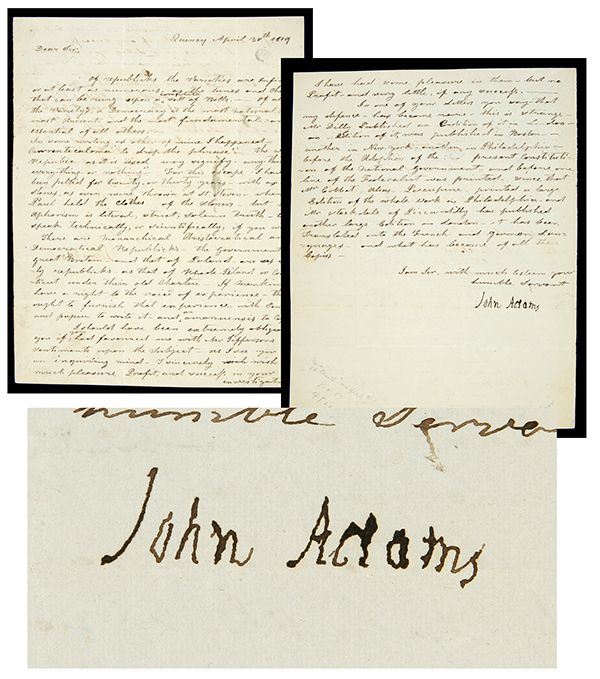 Quincy April 30th 1819
Dear Sir,
Of republicks the Varieties are
or at least as numerous as the tunes and
that can be rung upon a set of Bells — Of
the Variety, a Democracy is the most natural
most Ancient and the most fundamental and
essential of all others. —
In some writing or other of mine I happened,
Currente calamo to drop the phrase The word
Republic as it is used may signify any thing
everything or nothing — For this escape I have
been pelted for twenty or thirty years with as
Stones as ever were thrown at St Steven when
Paul held the clothes of the Stoners — but
Aphorism is literal, strict, solemn truth — to
speak technically, or scientifically, if you
There are Monarchical Aristocratical and
Democratical Republicks — the Government
great Britain and that of Poland are as
ly republicks as that of Rhode Island or Con
ticut under their old Charters — If mankind
have a right to the voice of experience — they
ought to furnish that experience with
and paper to write it — and amanuensis to
I should have been extremely obliged
you if had favoured us with Mr Jeffersons
Sentiments upon the Subject — as I see you
an inquiring mind — I sincerely wish
much pleasure Profit and success in your
investigati
I have had some pleasure in them — but no
Profit, and very little, if any success —
In one of your letters you say that
my defence has become rare — this is strange —
Mr Dilly Published an Edition of it in Lon
an Edition of it, was published in Boston —
another New York another in Philadelphia —
before the Adoption of the present Constituti-
on of the National Government and before one
line of the Federalist was printed, since that
Mr Cobbet Alias, Porcupine printed a large
Edition of the whole work in Philadelphia, and
Mr Stockdale of Piccadilly has published
another large Edition in London — it has been
translated into the French and german Lan-
guages — and what has become of all these
Copies —
I am Sir, with much esteem your
humble Servant
John Adams
humble Serva
John Adams